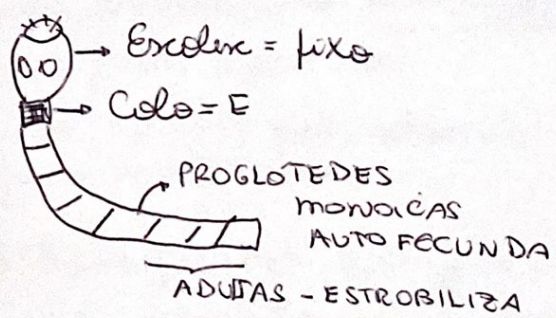 Escolex = fixo
Colo = E
PROGLOTEDES
MONOICAS
AUTO FECUNDA
ADULTAS - ESTROBILIZA